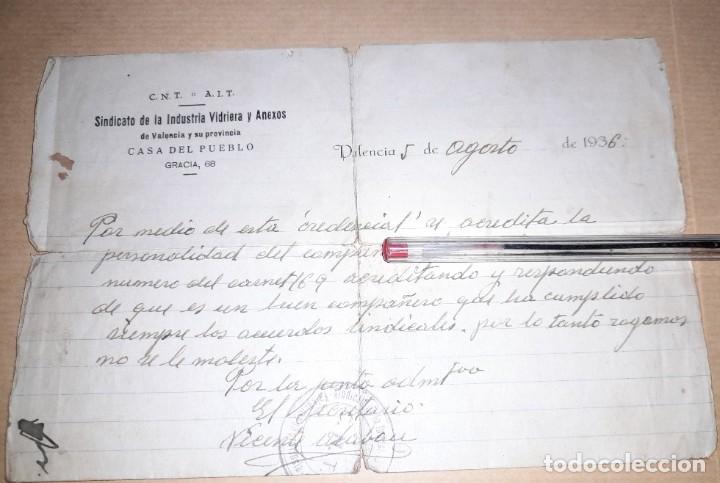 C.N.T. = A.I.T.
Sindicato de la Industria Vidriera y Anexos
de Valencia y su provincia
CASA DEL PUEBLO
GRACIA, 68
Valencia 5 de agosto de 1936
Por medio de esta "credencial" se, acredita la
personalidad del
numero del carnet 169 acreditando y respondiendo
de que es un buen compañero que ha cumplido
siempre los acuerdos sindicales. por lo tanto rogamos
no se le moleste.
Por la junta admtva
El Secretario:
Vicente
todocoleccion.net